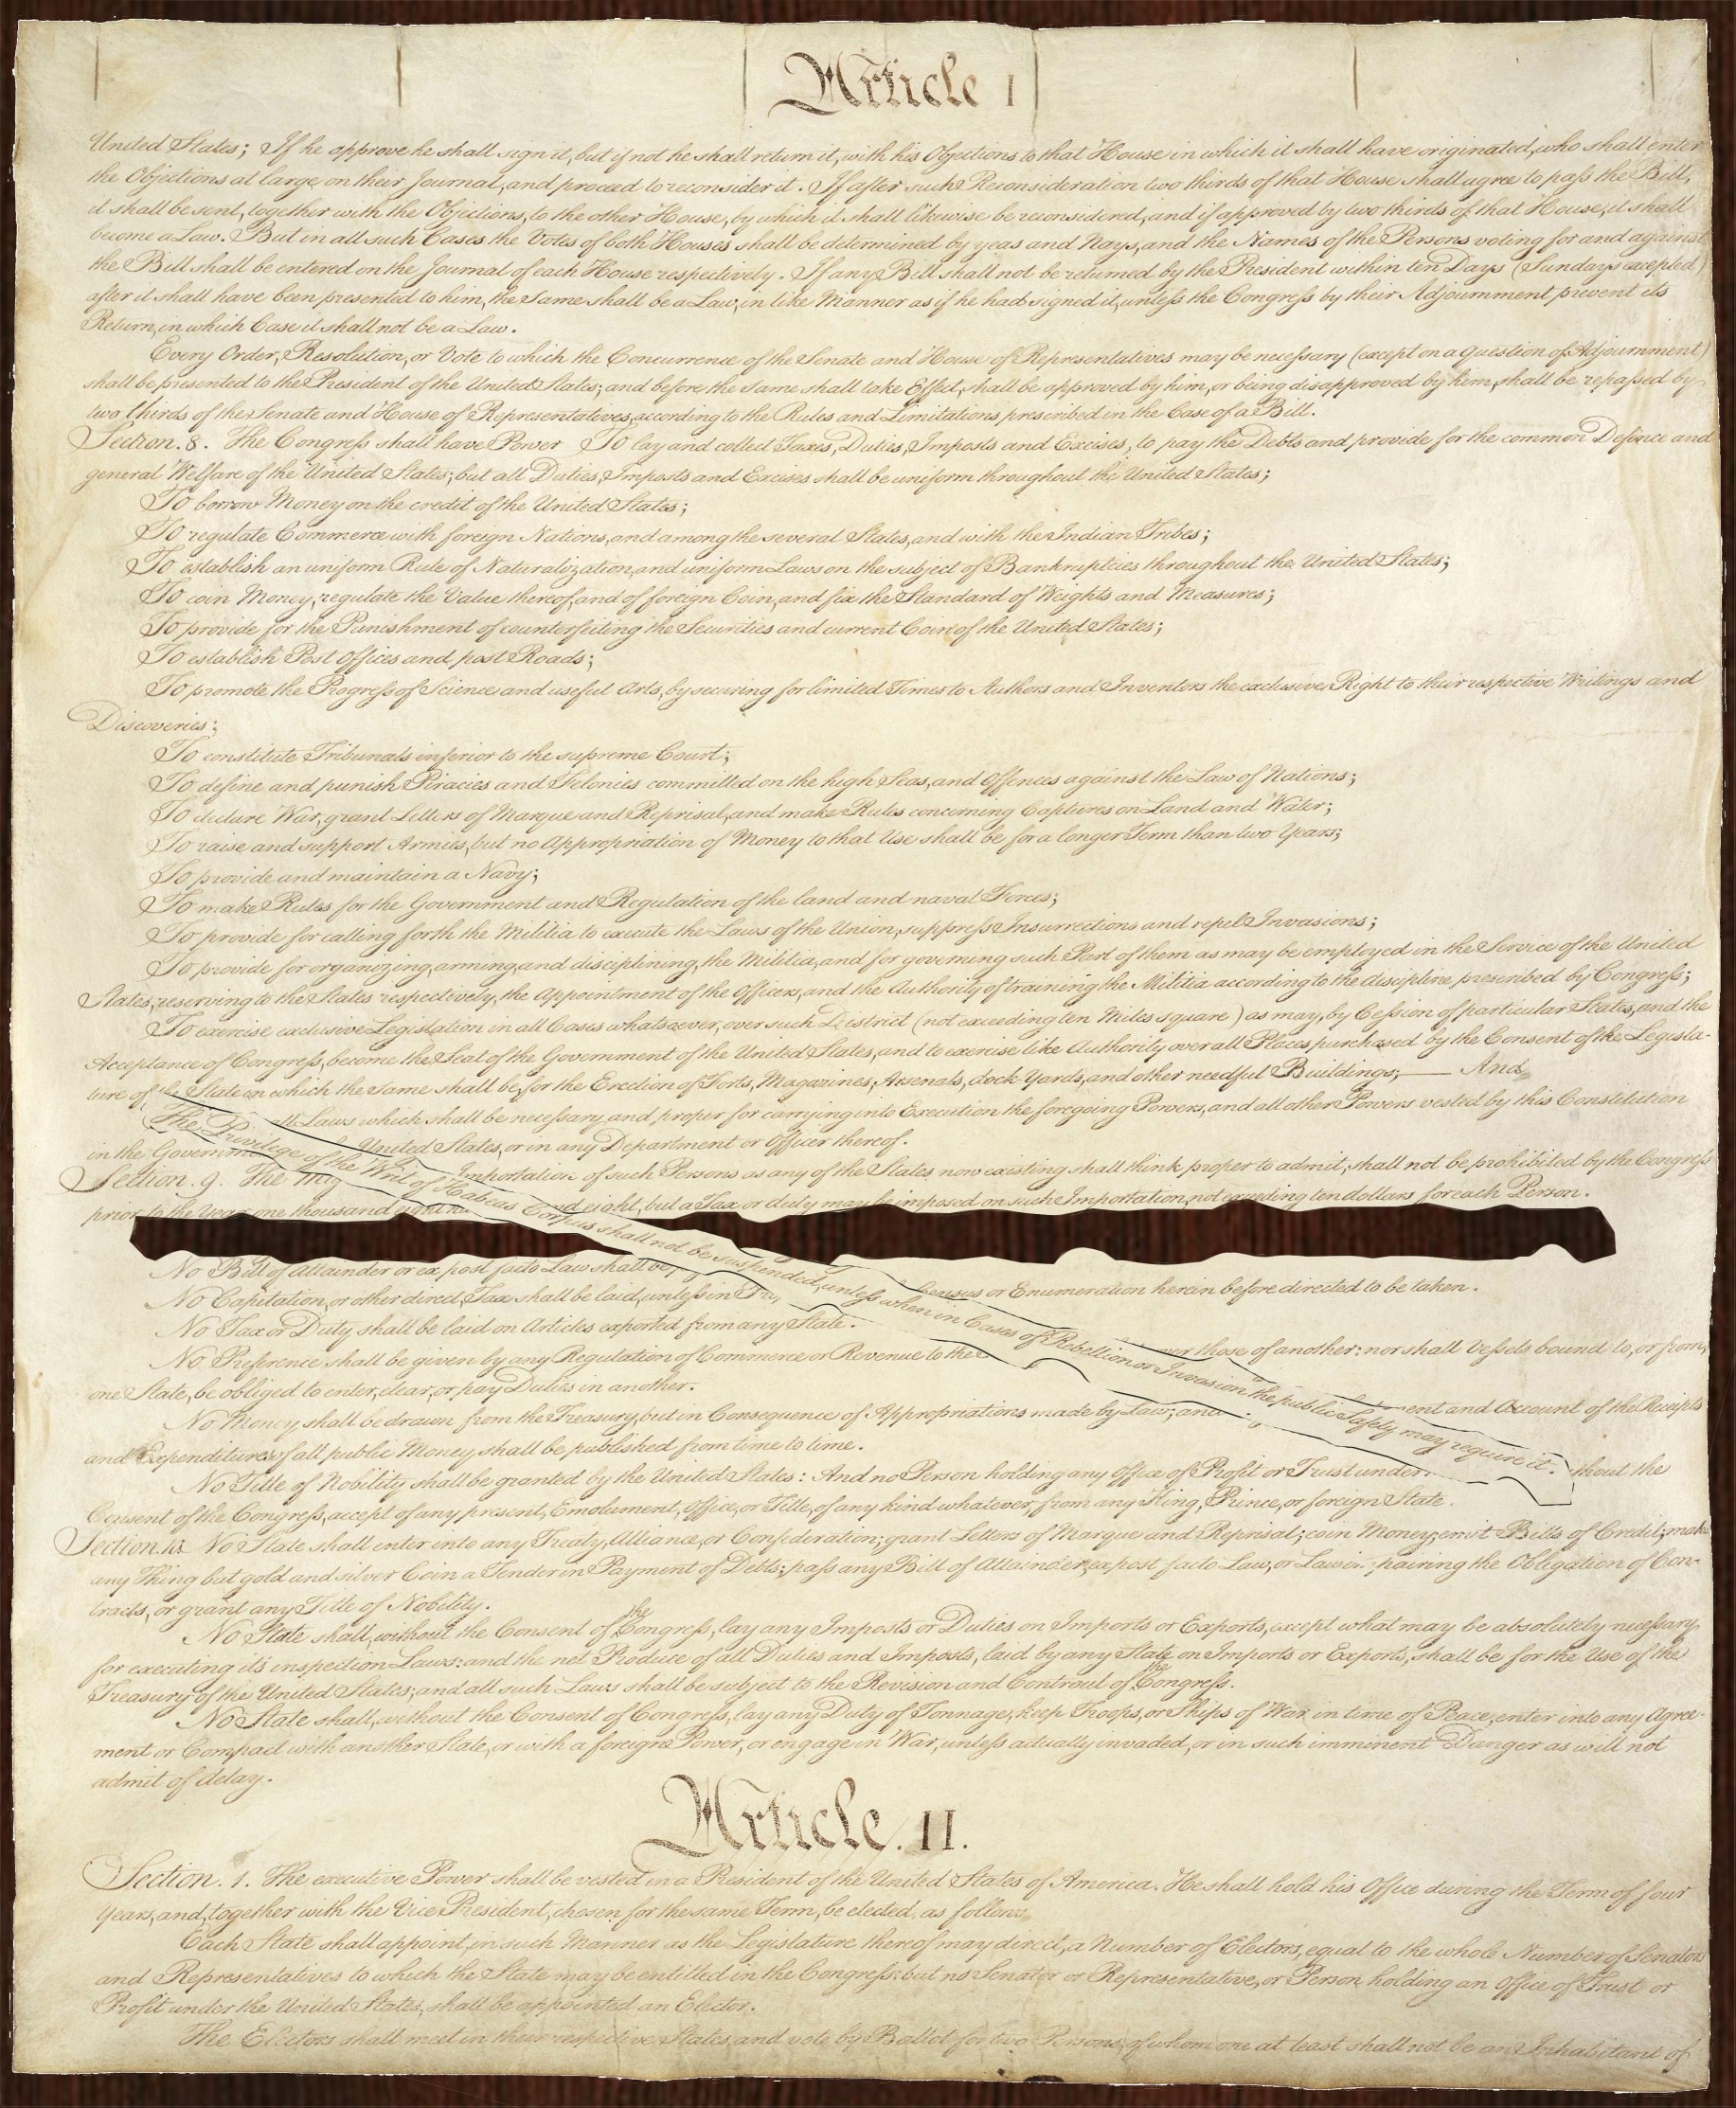 Article I
United States; If he approve he shall sign it, but if not he shall return it, with his Objections to that House in which it shall have originated, who shall enter
the Objections at large on their Journal, and proceed to reconsider it. If after such Reconsideration two thirds of that House shall agree to pass the Bill,
it shall be sent, together with the Objections, to the other House, by which it shall likewise be reconsidered, and if approved by two thirds of that House, it shall
become a Law. But in all such Cases the Votes of both Houses shall be determined by yeas and Nays, and the Names of the Persons voting for and against
the Bill shall be entered on the Journal of each House respectively. If any Bill shall not be returned by the President within ten Days (Sundays excepted)
after it shall have been presented to him, the Same shall be a Law, in like Manner as if he had signed it, unless the Congress by their Adjournment prevent its
Return, in which Case it shall not be a Law.
Every Order, Resolution, or Vote to which the Concurrence of the Senate and House of Representatives may be necessary (except on a question of Adjournment)
shall be presented to the President of the United States; and before the Same shall take Effect, shall be approved by him, or being disapproved by him, shall be repassed by
two thirds of the Senate and House of Representatives, according to the Rules and Limitations prescribed in the Case of a Bill.
Section. 8. The Congress shall have Power To lay and collect Taxes, Duties, Imposts and Excises, to pay the Debts and provide for the common Defence and
general Welfare of the United States; but all Duties, Imposts and Excises shall be uniform throughout the United States;
To borrow Money on the credit of the United States;
To regulate Commerce with foreign Nations, and among the several States, and with the Indian Tribes;
To establish an uniform Rule of Naturalization, and uniform Laws on the subject of Bankruptcies throughout the United States;
To coin Money, regulate the Value thereof, and of foreign Coin, and fix the Standard of Weights and Measures;
To provide for the Punishment of counterfeiting the Securities and current Coin of the United States;
To establish Post Offices and post Roads;
To promote the Progress of Science and useful Arts, by securing for limited Times to Authors and Inventors the exclusive Right to their respective Writings and
Discoveries;
To constitute Tribunals inferior to the supreme Court;
To define and punish Piracies and Felonies committed on the high Seas, and Offences against the Law of Nations;
To declare War, grant Letters of Marque and Reprisal, and make Rules concerning Captures on Land and Water;
To raise and support Armies, but no Appropriation of Money to that Use shall be for a longer Term than two Years;
To provide and maintain a Navy;
To make Rules for the Government and Regulation of the land and naval Forces;
To provide for calling forth the Militia to execute the Laws of the Union, suppress Insurrections and repel Invasions;
To provide for organizing, arming, and disciplining, the Militia, and for governing such Part of them as may be employed in the Service of the United
States, reserving to the States respectively, the Appointment of the Officers, and the Authority of training the Militia according to the discipline prescribed by Congress;
To exercise exclusive Legislation in all Cases whatsoever, over such District (not exceeding ten Miles square) as may, by Cession of particular States, and the
Acceptance of Congress, become the Seat of the Government of the United States, and to exercise like Authority over all Places purchased by the Consent of the Legisla-
ture of the State in which the Same shall be, for the Erection of Forts, Magazines, Arsenals, dock-Yards, and other needful Buildings;—— And
Laws which shall be necessary and proper for carrying into Execution the foregoing Powers, and all other Powers vested by this Constitution
in the Governme United States, or in any Department or Officer thereof.
Section. 9. The Mig Importation of such Persons as any of the States now existing shall think proper to admit, shall not be prohibited by the Congress
prior to the Year one thousand eight hu and eight, but a Tax or duty may be imposed on such Importation, not exceeding ten dollars for each Person.
The Privilege of the Writ of Habeas Corpus shall not be suspended, unless when in Cases of Rebellion or Invasion the public Safety may require it.
No Bill of Attainder or ex post facto Law shall be
No Capitation, or other direct, Tax shall be laid, unless in Census or Enumeration herein before directed to be taken.
No Tax or Duty shall be laid on Articles exported from any State.
No Preference shall be given by any Regulation of Commerce or Revenue to the over those of another: nor shall Vessels bound to, or from,
one State, be obliged to enter, clear, or pay Duties in another.
No Money shall be drawn from the Treasury, but in Consequence of Appropriations made by Law; and ent and Account of the Receipts
and Expenditures of all public Money shall be published from time to time.
No Title of Nobility shall be granted by the United States: And no Person holding any Office of Profit or Trust under thout the
Consent of the Congress, accept of any present, Emolument, Office, or Title, of any kind whatever, from any King, Prince, or foreign State.
Section. 10. No State shall enter into any Treaty, Alliance, or Confederation; grant Letters of Marque and Reprisal; coin Money; emit Bills of Credit; make
any Thing but gold and silver Coin a Tender in Payment of Debts; pass any Bill of Attainder, ex post facto Law, or Law impairing the Obligation of Con-
tracts, or grant any Title of Nobility.
No State shall, without the Consent of the Congress, lay any Imposts or Duties on Imports or Exports, except what may be absolutely necessary
for executing it's inspection Laws: and the net Produce of all Duties and Imposts, laid by any State on Imports or Exports, shall be for the Use of the
Treasury of the United States; and all such Laws shall be subject to the Revision and Controul of the Congress.
No State shall, without the Consent of Congress, lay any Duty of Tonnage, keep Troops, or Ships of War in time of Peace, enter into any Agree-
ment or Compact with another State, or with a foreign Power, or engage in War, unless actually invaded, or in such imminent Danger as will not
admit of delay.
Article. II.
Section. 1. The executive Power shall be vested in a President of the United States of America. He shall hold his Office during the Term of four
Years, and, together with the Vice President, chosen for the same Term, be elected, as follows
Each State shall appoint, in such Manner as the Legislature thereof may direct, a Number of Electors, equal to the whole Number of Senators
and Representatives to which the State may be entitled in the Congress: but no Senator or Representative, or Person holding an Office of Trust or
Profit under the United States, shall be appointed an Elector.
The Electors shall meet in their respective States, and vote by Ballot for two Persons, of whom one at least shall not be an Inhabitant of